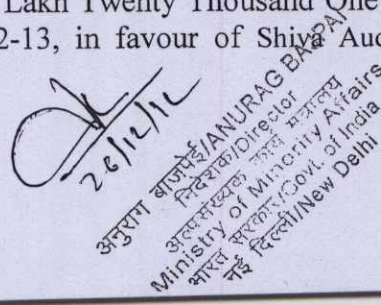 Lakh Twenty Thousand One
2-13, in favour of Shiva Aud
26/12/12
अनुराग बाजपेई/ANURAG BAJPAI
निदेशक/Director
अल्पसंख्यक कार्य मंत्रालय
Ministry of Minority Affairs
भारत सरकार/Govt. of India
नई दिल्ली/New Delhi